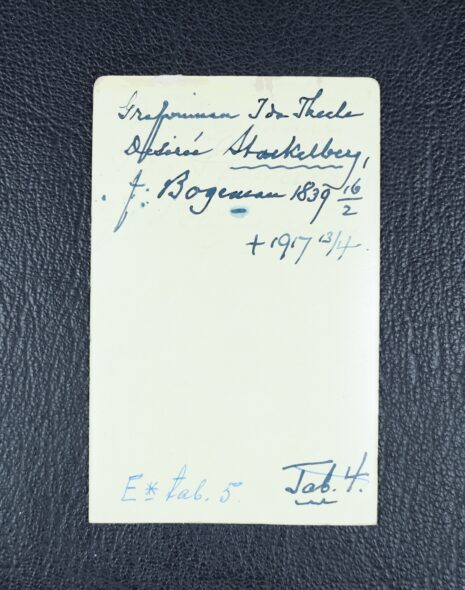 Grefvinnan Ida Thecla
Desirée Stackelberg,
f: Bogeman 1839 16/2
+ 1917 13/4.
E* tab. 5.
Tab. 4.